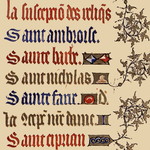 la suscepcion des reliqs
Saint ambroise.
Sainte barbe.
Saint nicholas
Sainte fare
la nre dame
Saint ciprian